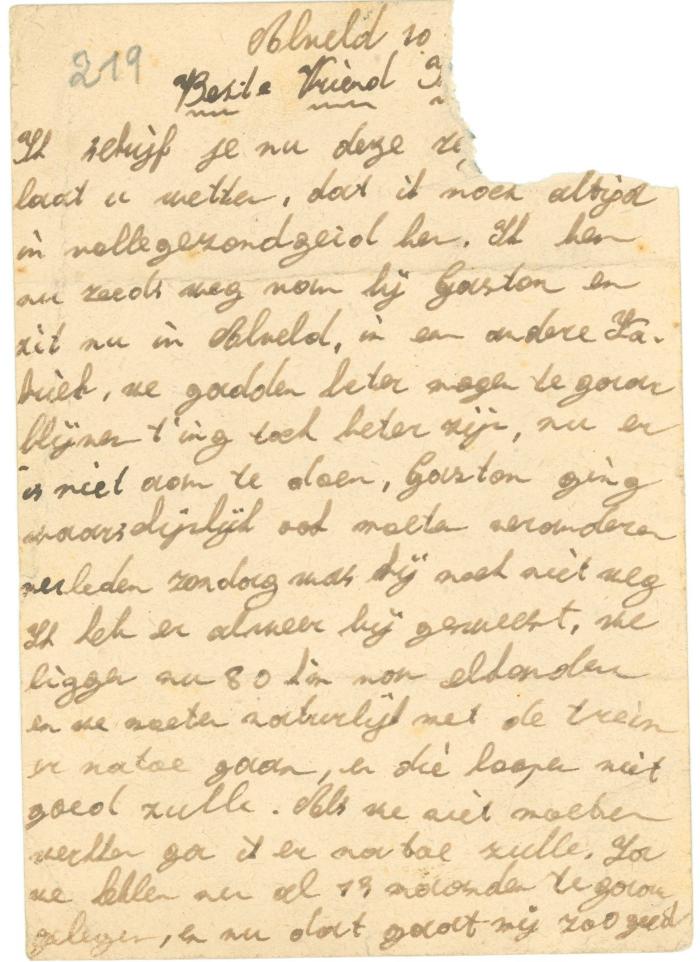 219
Alveld 10
Beste Vriend G
Ik schrijf je nu deze
laat u wetten, dat ik noch altijd
in vollegezondgeid ben. Ik ben
nu reeds weg van bij Gaston en
zit nu in Alveld, in een andere Fa-
briek, we gadden beter mogen te gaar
blijven t'ing toch beter zijn, nu er
is niet aom te doen, Gaston ging
waarsdijnlijk ook moeten veranderen
verleden zondag was hij noch niet weg
Ik heb er alweer bij geweest, we
liggen nu 80 km von elkanden
en we moeten naturlijk met de trein
er natoe gaan, en die loopen niet
goed zulle. Als we niet moeten
werkten ga ik er natoe zulle. Ja
we hebben nu al 19 maanden te gaar
gelegen, en nu dat gaat mij zoo goed